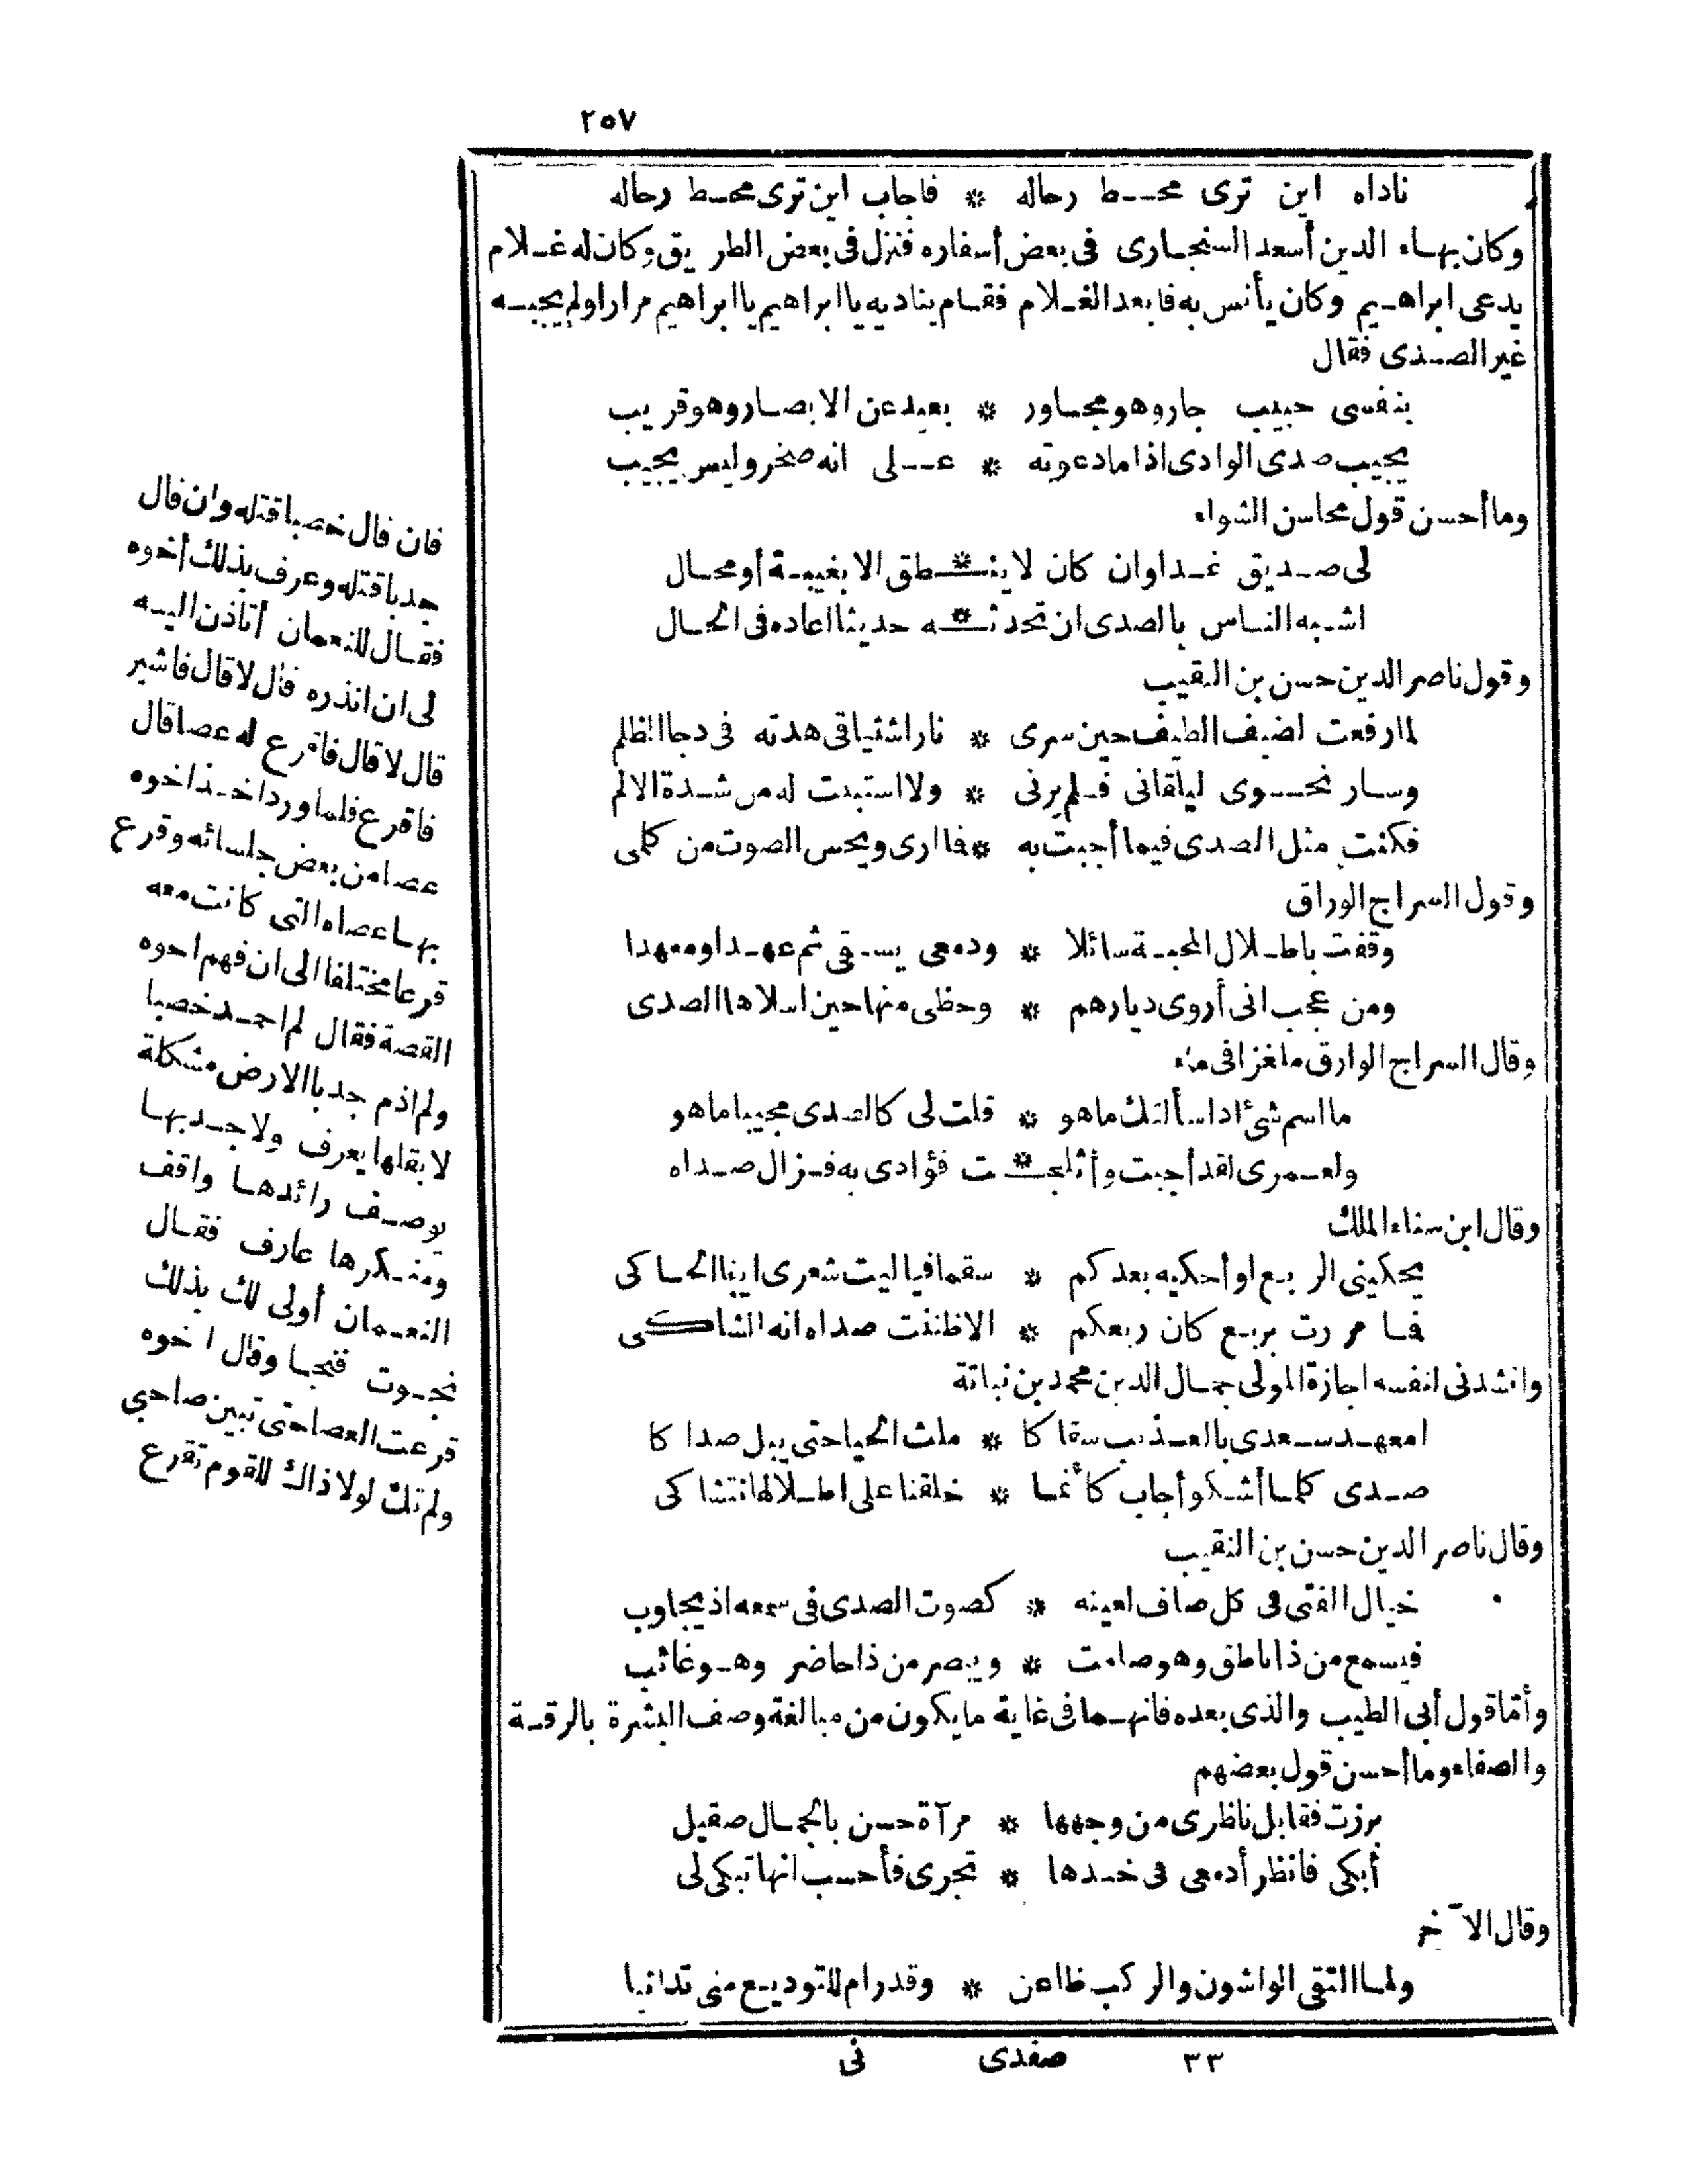 ٢٥٧
ناداه اين ترى محط رحاله * فاجاب اين ترى محط رحاله
وكان بهاء الدين أسعد السنجارى فى بعض أسفاره فنزل فى بعض الطريق وكان له غلام
يدعى ابراهيم وكان يأنس به فابعد الغلام فقام يناديه يا ابراهيم يا ابراهيم مرارا ولم يجبه
غير الصدى فقال
بنفسى حبيب جار وهو مجاور * بعيد عن الابصار وهو قريب
يجيب صدى الوادى اذا ما دعوته * على انه صخر وليس يجيب
وما أحسن قول محاسن الشواء
لى صديق غدا وان كان لا ينطق الا بغيبة أو محال
اشبه الناس بالصدى ان تحدثه حديثا اعاده فى الحال
وقول ناصر الدين حسن بن النقيب
لما رفعت لضيف الطيف حين سرى * نار اشتياقى هدته فى دجا الظلم
وسار نحوى ليلقانى فلم يرنى * ولا استبنت له من شدة الالم
فكنت مثل الصدى فيما أجبت به * فما ارى ويحس الصوت من كلمى
وقول السراج الوراق
وقفت باطلال المحبة سائلا * ودمعى يسقى ثم عهدا ومعهدا
ومن عجب انى أروى ديارهم * وحظى منها حين اسلاها الصدى
وقال السراج الوارق ملغزا فى
ما اسم شئ اذا سألتك ما هو * قلت لى كالصدى مجيبا ما هو
ولعمرى لقد أجبت وأثلجت فؤادى به فزال صداه
وقال ابن سناء الملك
يحكينى الربع او أحكيه بعدكم * سقما فيا ليت شعرى اينا الحاكى
فما مررت بربع كان ربعكم * الا ظننت صداه انه الشاكى
وانشدنى لنفسه اجازة المولى جمال الدين محمد بن نباتة
امعهد سعدى بالعذيب سقاكا * ملث الحيا حتى يبل صداكا
صدى كلما أشكو أجاب كأنما * خلقنا على اطلالها نتشاكى
وقال ناصر الدين حسن بن النقيب
خيال الفتى فى كل صاف لعينه * كصوت الصدى فى سمعه اذ يجاوب
فيسمع من ذا ناطق وهو صامت * ويبصر من ذا حاضر وهو غائب
وأما قول أبى الطيب والذى بعده فانهما فى غاية ما يكون من مبالغة وصف البشرة بالرقة
والصفاء وما أحسن قول بعضهم
برزت فقابل ناظرى من وجهها * مرآة حسن بالجمال صقيل
أبكى فانظر أدمعى فى خدها * تجرى فأحسب انها تبكى لى
وقال الآخر
ولما التقى الواشون والركب ظاعن * وقد رام للتوديع منى تدانيا
٣٣ صفدى نى
فان قال خصبا قتله وان قال
جدبا قتله وعرف بذلك أخوه
فقال للنعمان أتاذن اليه
لى ان انذره قال لا قال فاشير
قال لا قال فاقرع له عصا قال
فاقرع فلما ورد اخذ اخوه
عصا من بعض جلسائه وقرع
بها عصاه التى كانت معه
قرعا مختلفا الى ان فهم اخوه
القصة فقال لم احمد خصبا
ولم اذم جدبا الارض مشكلة
لا بقلها يعرف ولا جدبها
يوصف رائدها واقف
ومنكرها عارف فقال
النعمان أولى لك بذلك
نجوت فنجا وقال اخوه
قرعت العصا حتى تبين صاحبى
ولم تك لولا ذاك للقوم تقرع